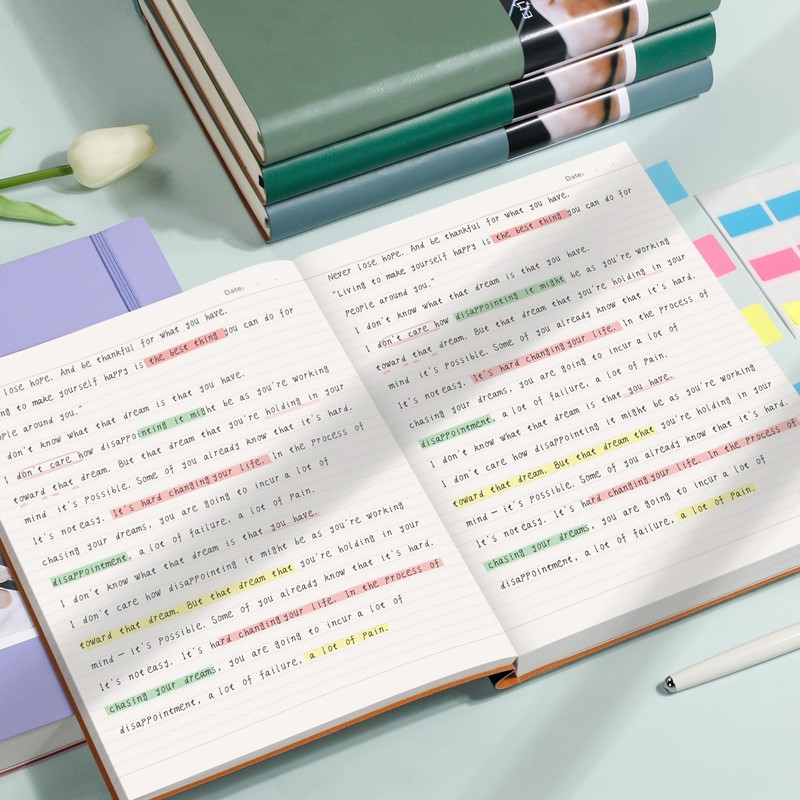 Date:
lose hope. And be thankful for what you have.
to make yourself happy is the best thing you can do for
people around you."
don't know what that dream is that you have.
I don't care how disappointing it might be as you're working
toward that dream. But that dream that you're holding in your
mind it's possible. Some of you already know that it's hard.
It's not easy. It's hard changing your life. In the process of
chasing your dreams, you are going to incur a lot of
disappointment, a lot of failure, a lot of pain.
I don't know what that dream is that you have.
I don't care how disappointing it might be as you're working
toward that dream. But that dream that you're holding in your
mind — it's possible. Some of you already know that it's hard.
It's not easy. It's hard changing your life. In the process of
chasing your dreams, you are going to incur a lot of
disappointment, a lot of failure, a lot of pain.
Date:
Never lose hope. And be thankful for what you have.
"Living to make yourself happy is the best thing you can do for
people around you."
I don't know what that dream is that you have.
I don't care how disappointing it might be as you're working
toward that dream. But that dream that you're holding in your
mind it's possible. Some of you already know that it's hard.
It's not easy. It's hard changing your life. In the process of
chasing your dreams, you are going to incur a lot of
disappointment, a lot of failure, a lot of pain.
I don't know what that dream is that you have.
I don't care how disappointing it might be as you're working
toward that dream. But that dream that you're holding in your
mind — it's possible. Some of you already know that it's hard.
It's not easy. It's hard changing your life. In the process of
chasing your dreams, you are going to incur a lot of
disappointment, a lot of failure, a lot of pain.